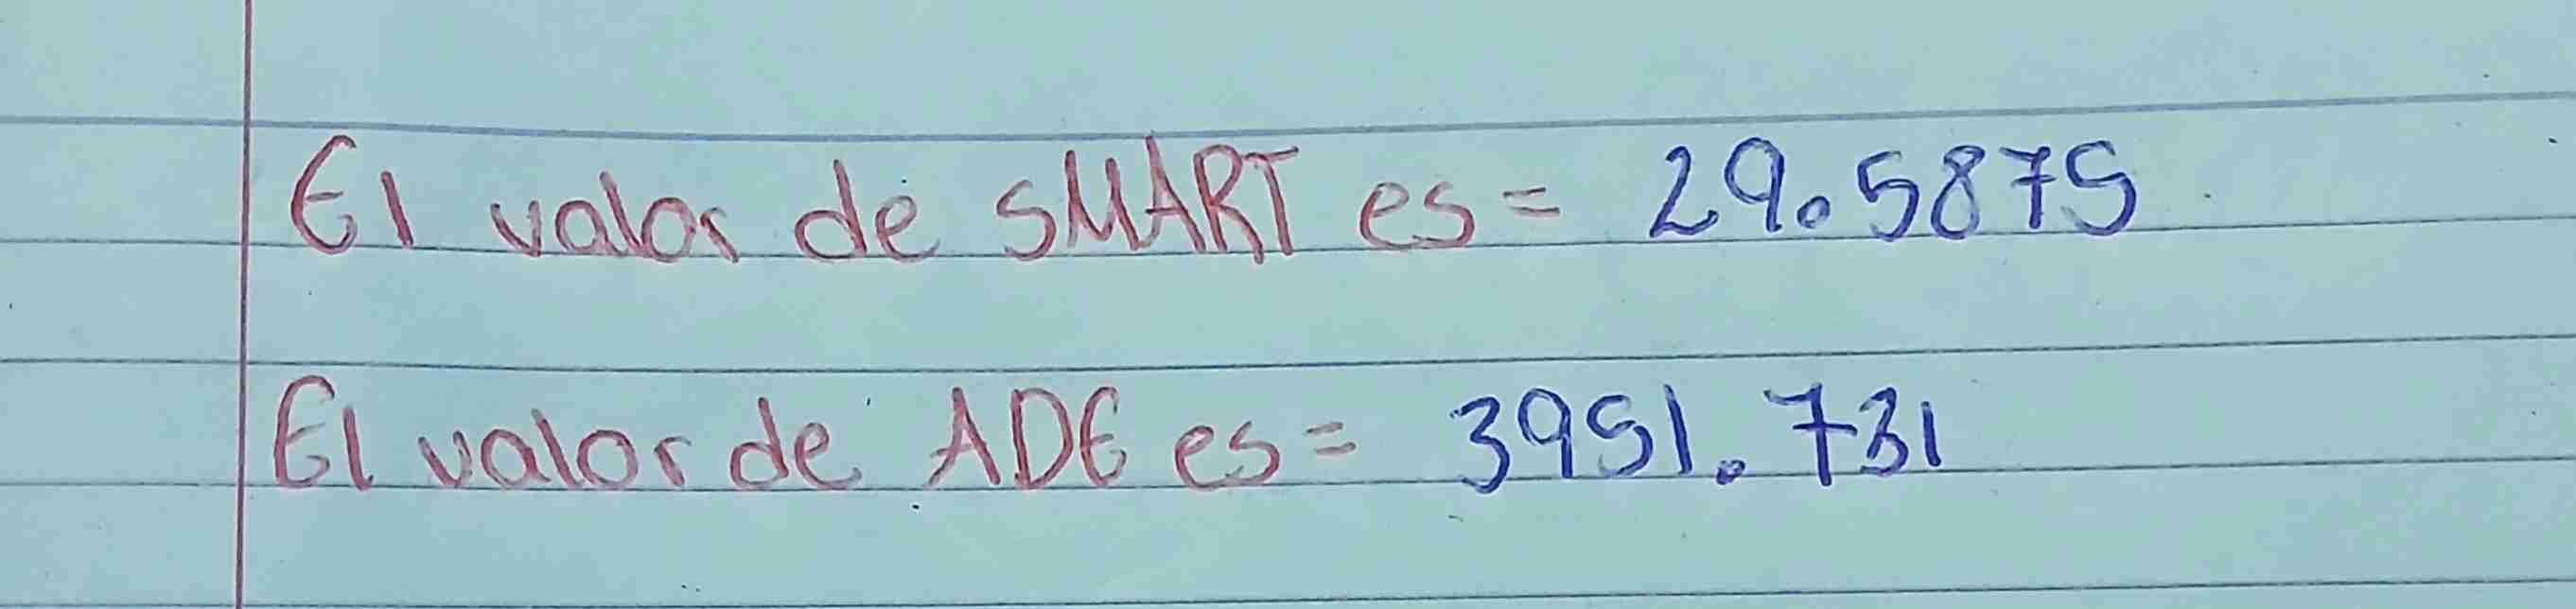 El valor de SMART es = 29.5875
El valor de ADE es = 3951.731